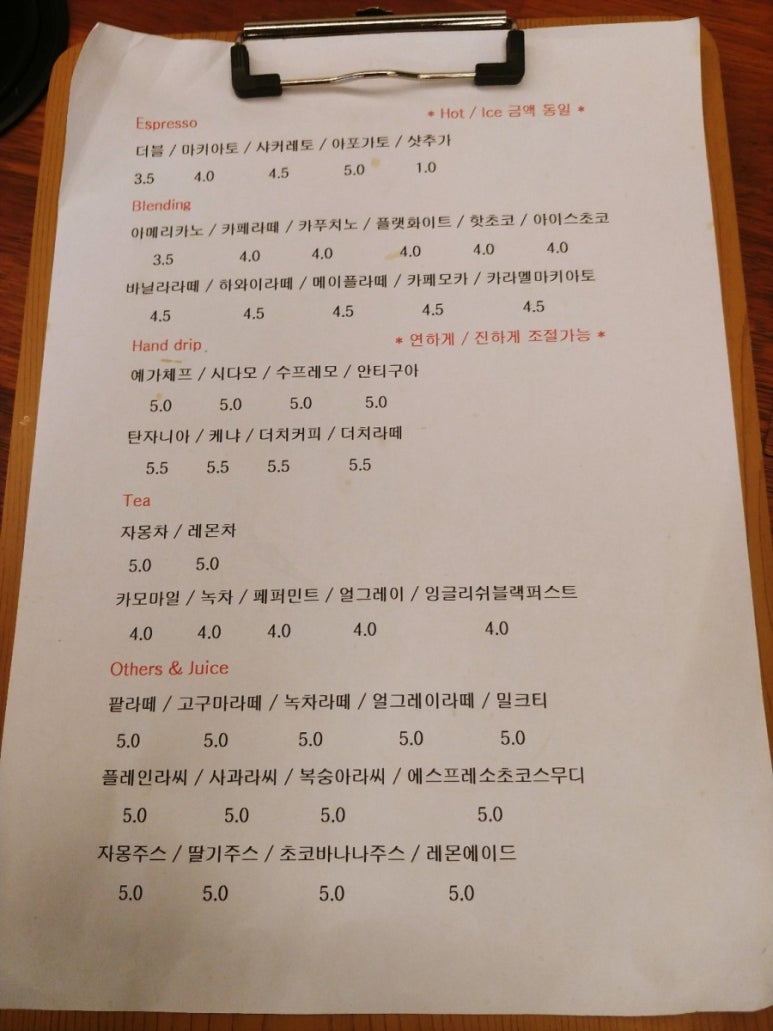 Espresso * Hot / Ice 금액 동일 *
더블 / 마키아토 / 샤커레토 / 아포가토 / 샷추가
3.5 4.0 4.5 5.0 1.0
Blending
아메리카노 / 카페라떼 / 카푸치노 / 플랫화이트 / 핫초코 / 아이스초코
3.5 4.0 4.0 4.0 4.0 4.0
바닐라라떼 / 하와이라떼 / 메이플라떼 / 카페모카 / 카라멜마키아토
4.5 4.5 4.5 4.5 4.5
Hand drip * 연하게 / 진하게 조절가능 *
예가체프 / 시다모 / 수프레모 / 안티구아
5.0 5.0 5.0 5.0
탄자니아 / 케냐 / 더치커피 / 더치라떼
5.5 5.5 5.5 5.5
Tea
자몽차 / 레몬차
5.0 5.0
카모마일 / 녹차 / 페퍼민트 / 얼그레이 / 잉글리쉬블랙퍼스트
4.0 4.0 4.0 4.0 4.0
Others & Juice
팥라떼 / 고구마라떼 / 녹차라떼 / 얼그레이라떼 / 밀크티
5.0 5.0 5.0 5.0 5.0
플레인라씨 / 사과라씨 / 복숭아라씨 / 에스프레소초코스무디
5.0 5.0 5.0 5.0
자몽주스 / 딸기주스 / 초코바나나주스 / 레몬에이드
5.0 5.0 5.0 5.0